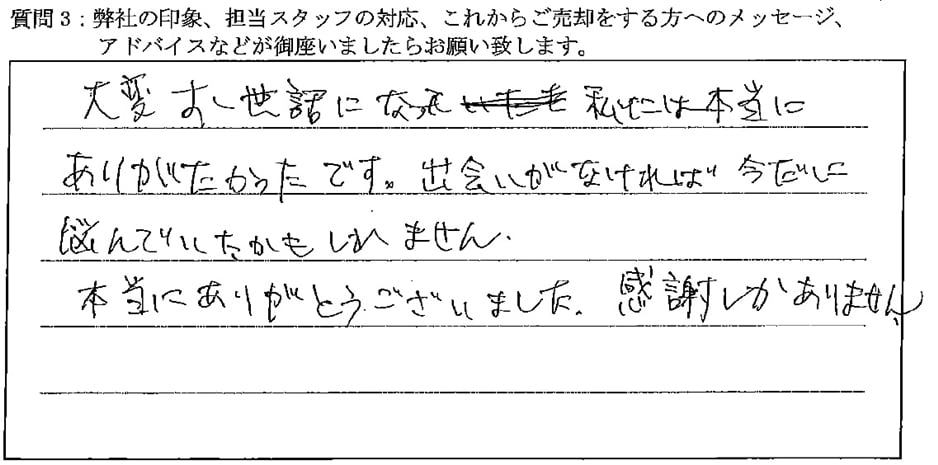 質問3：弊社の印象、担当スタッフの対応、これからご売却をする方へのメッセージ、
アドバイスなどが御座いましたらお願い致します。
大変お世話になって 私には本当に
ありがたかったです。出会いがなければ 今だに
悩んでいたかもしれません.
本当にありがとうございました. 感謝しかありません